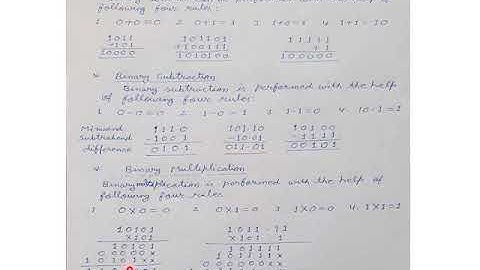 following four rules:
1 0+0=0 2 0+1=1 3 1+0=1 4 1+1=10
1011 101101 11111
+101 +100111 +1
10000 1010100 100000
Binary Subtraction
Binary subtraction is performed with the help
of following four rules:
1 0-0=0 2 1-0=1 3 1-1=0 4. 10-1=1
Minuend 1110 101.10 10100
Subtrahend -1001 -1111
difference 0101 011.01 00101
Binary Multiplication
Binary multiplication is performed with the help of
following four rules
1 0X0=0 2 0X1=0 3 1X0=0 4. 1X1=1
10101 1011.11
X101
10101 101111
00000X 101111X
10101XX 000000XX